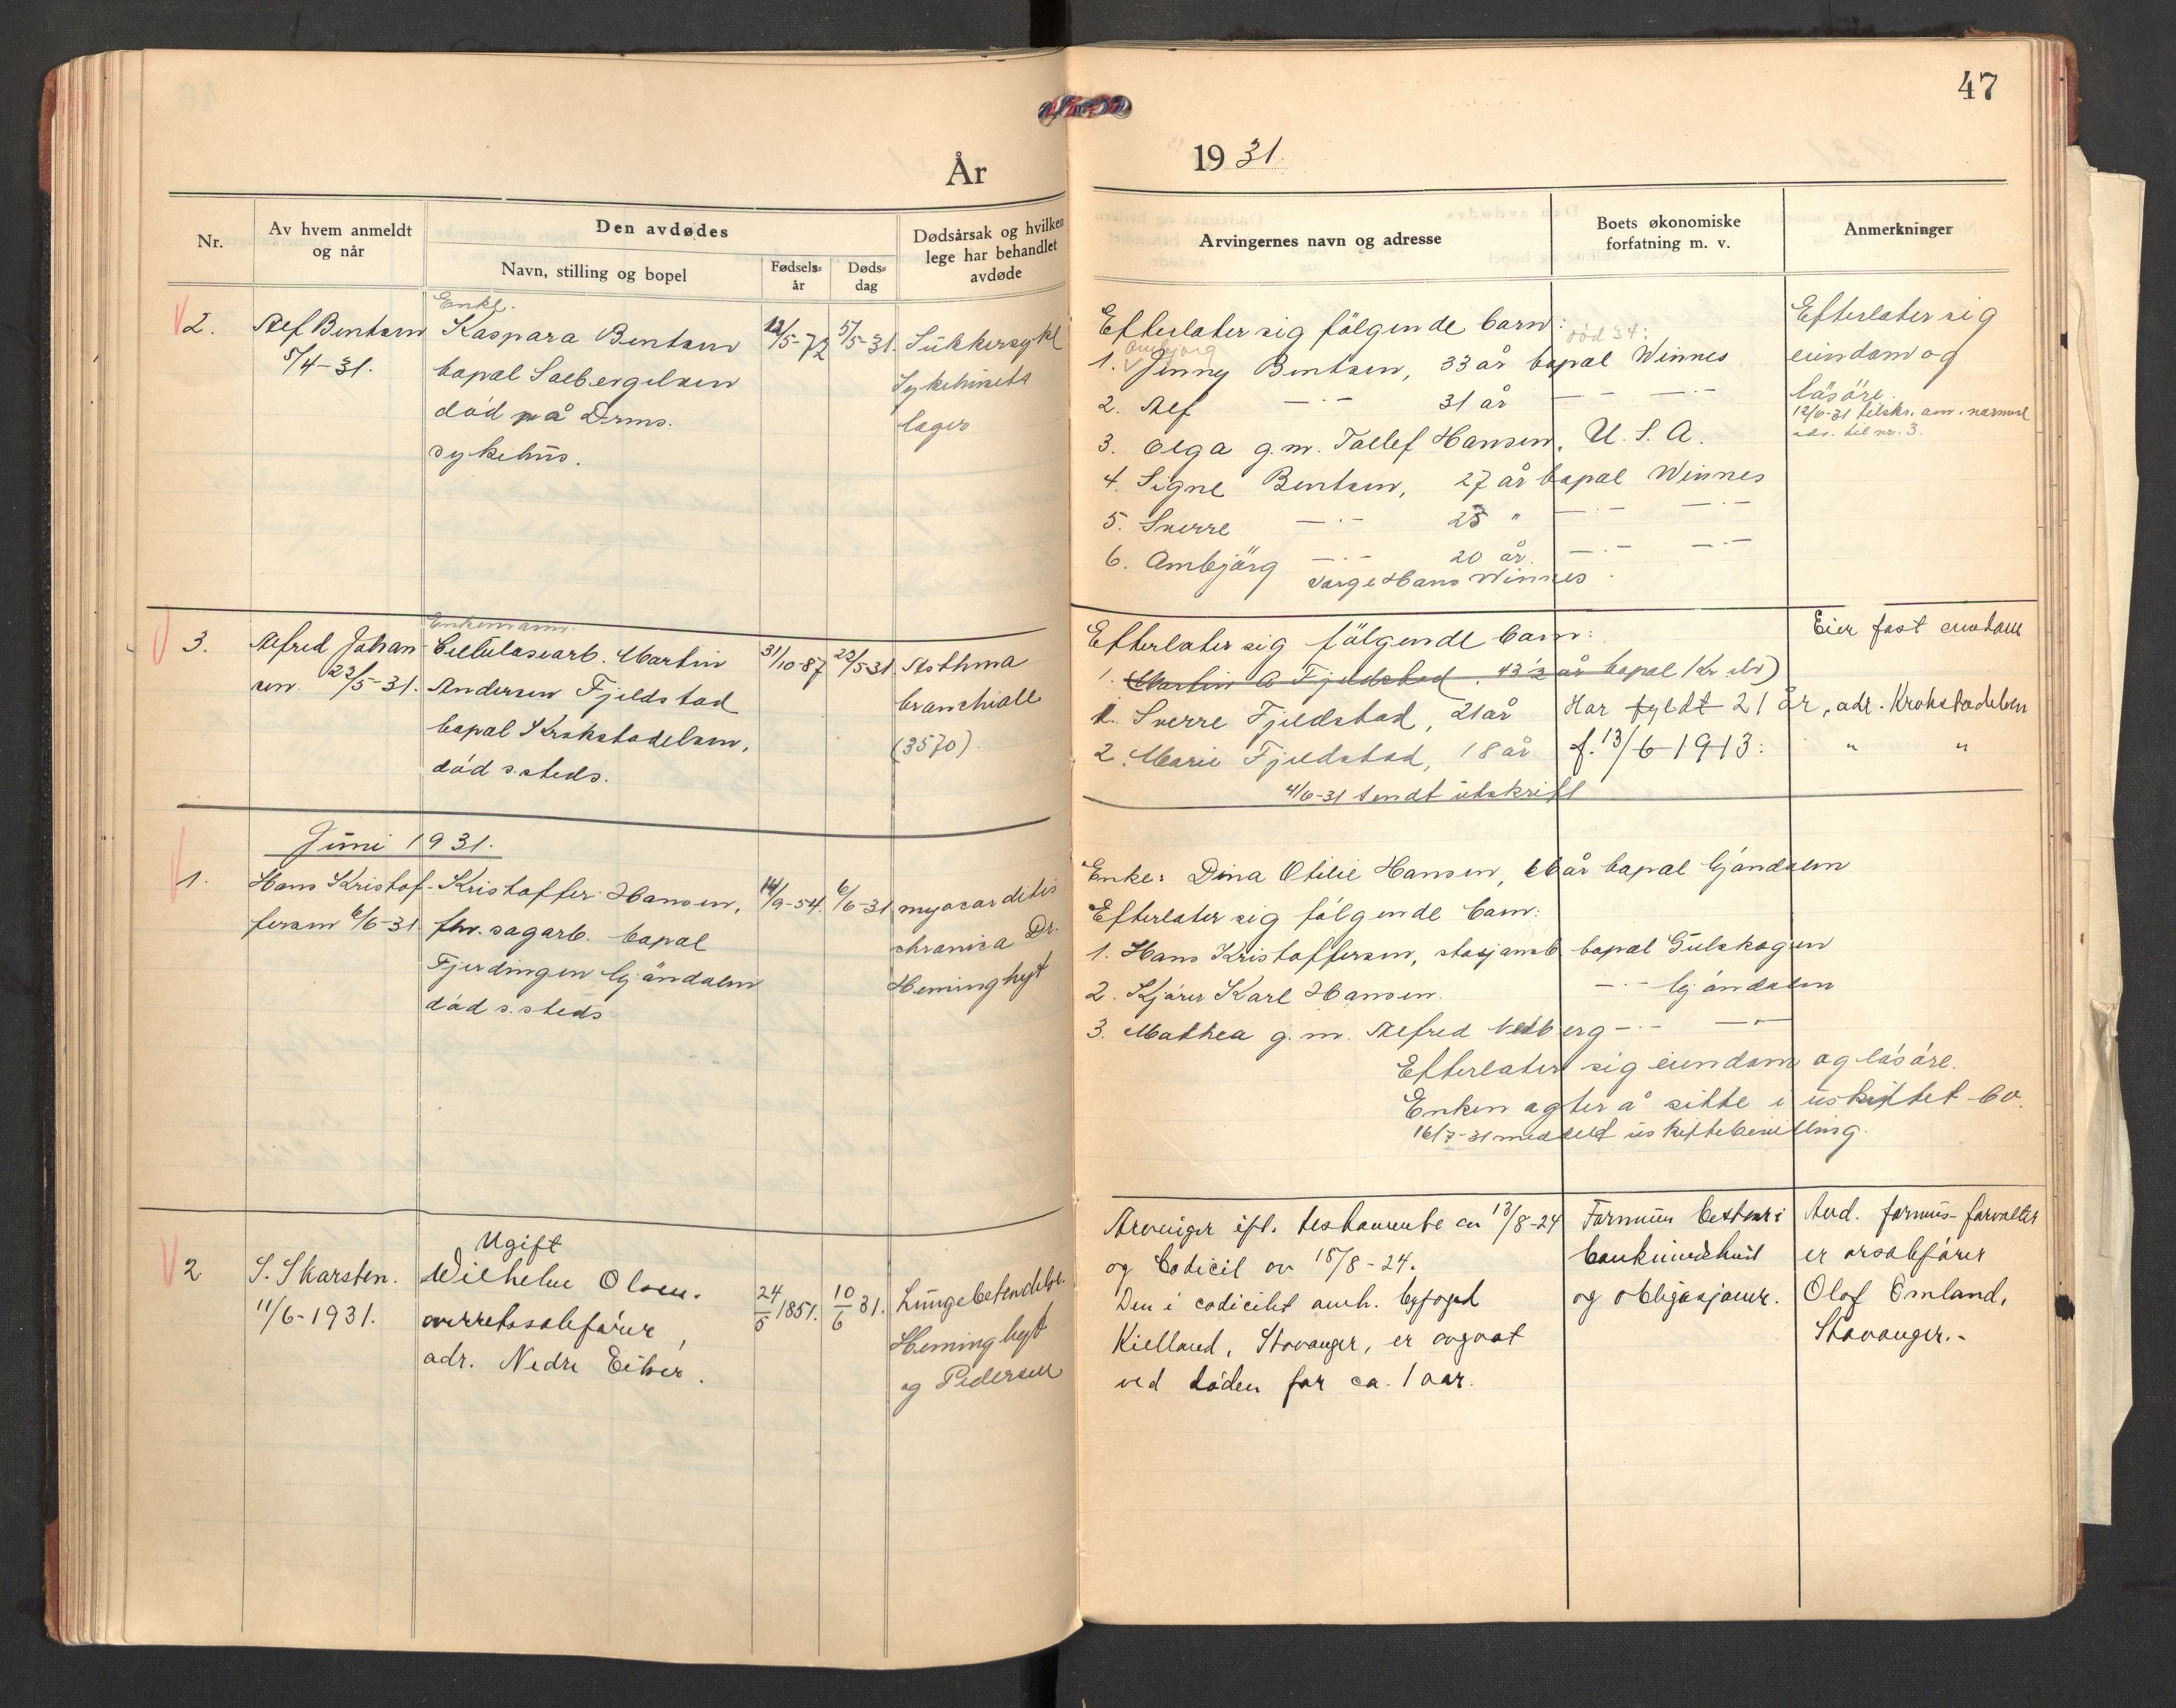 47
År 1931.
Nr.
Av hvem anmeldt
og når
Den avdødes
Navn, stilling og bopel
Fødsels-
år
Døds-
dag
Dødsårsak og hvilken
lege har behandlet
avdøde
Arvingernes navn og adresse
Boets økonomiske
forfatning m. v.
Anmerkninger
2.
Alf Bentsen
5/4-31.
Enke.
Kaspara Bentsen
bopel Solbergelven
død på Drms.
sykehus.
12/5-72
5/5-31.
Sukkersyke
Sykehusets
læger
Efterlater sig følgende barn:
død 34:
1. Jenny Bentsen, 33 år bopel Winnes
2. Alf —·— 31 år — · — — · —
3. Olga g.m. Tollef Hansen, U. S. A.
4. Signe Bentsen, 27 år bopel Winnes
5. Sverre —·— 25 " — · — — · —
6. Ambjørg —·— 20 år. — · — — · —
Verge Hans Winnes.
Efterlater sig
eiendom og
løsøre.
12/6-31 tilskr. om nærmere
adr. til nr. 3.
3.
Alfred Johan-
sen. 22/5-31.
Enkemann.
Cellulosearb. Martin
Andersen Fjeldstad
bopel Krokstadelven,
død s. steds.
31/10-87
22/5-31
Asthma
bronchiale
(3570).
Efterlater sig følgende barn:
1. Martin A Fjeldstad, 43 ½ år bopel Kr elv)
1. Sverre Fjeldstad, 21 år Har fyldt 21 år, adr. Krokstadelven
2. Marie Fjeldstad, 18 år f. 13/6-1913: " "
4/6-31 sendt utskrift
Eier fast eiendom
Juni 1931.
1.
Hans Kristof-
fersen 6/6-31
Kristoffer Hansen,
fhv. sagarb. bopel
Fjerdingen Mjøndalen
død s. steds
14/9-54.
6/6-31
myocarditis
chronica Dr.
Heminghyt
Enke: Dina Otilie Hansen, år bopel Mjøndalen
Efterlater sig følgende barn:
1. Hans Kristoffersen, stasjonsb. bopel Gulskogen
2. Kjører Karl Hansen. — · — Mjøndalen
3. Mathea g. m. Alfred Vedberg — · — — · —
Efterlater sig eiendom og løsøre.
Enken agter å sitte i uskiftet bo.
16/7-31 meddelt uskiftebevilling.
2
S. Skarsten.
11/6-1931.
Ugift
Wilhelm Olsen.
overretssakfører,
adr. Nedre Eiker.
24/5 1851.
10/6 31.
Lungebetendelse.
Heminghyt
og Pedersen
Arvinger ifl. testamente av 13/8-24
og Codicil av 15/8-24.
Den i codicilet anh. byfogd
Kielland, Stavanger, er avgaat
ved døden for ca. 1 aar.
Formuen bestaar i
bankinnskud
og obligasjoner.
And. formues-forvalter
er orsakfører
Olaf Omland,
Stavanger.-